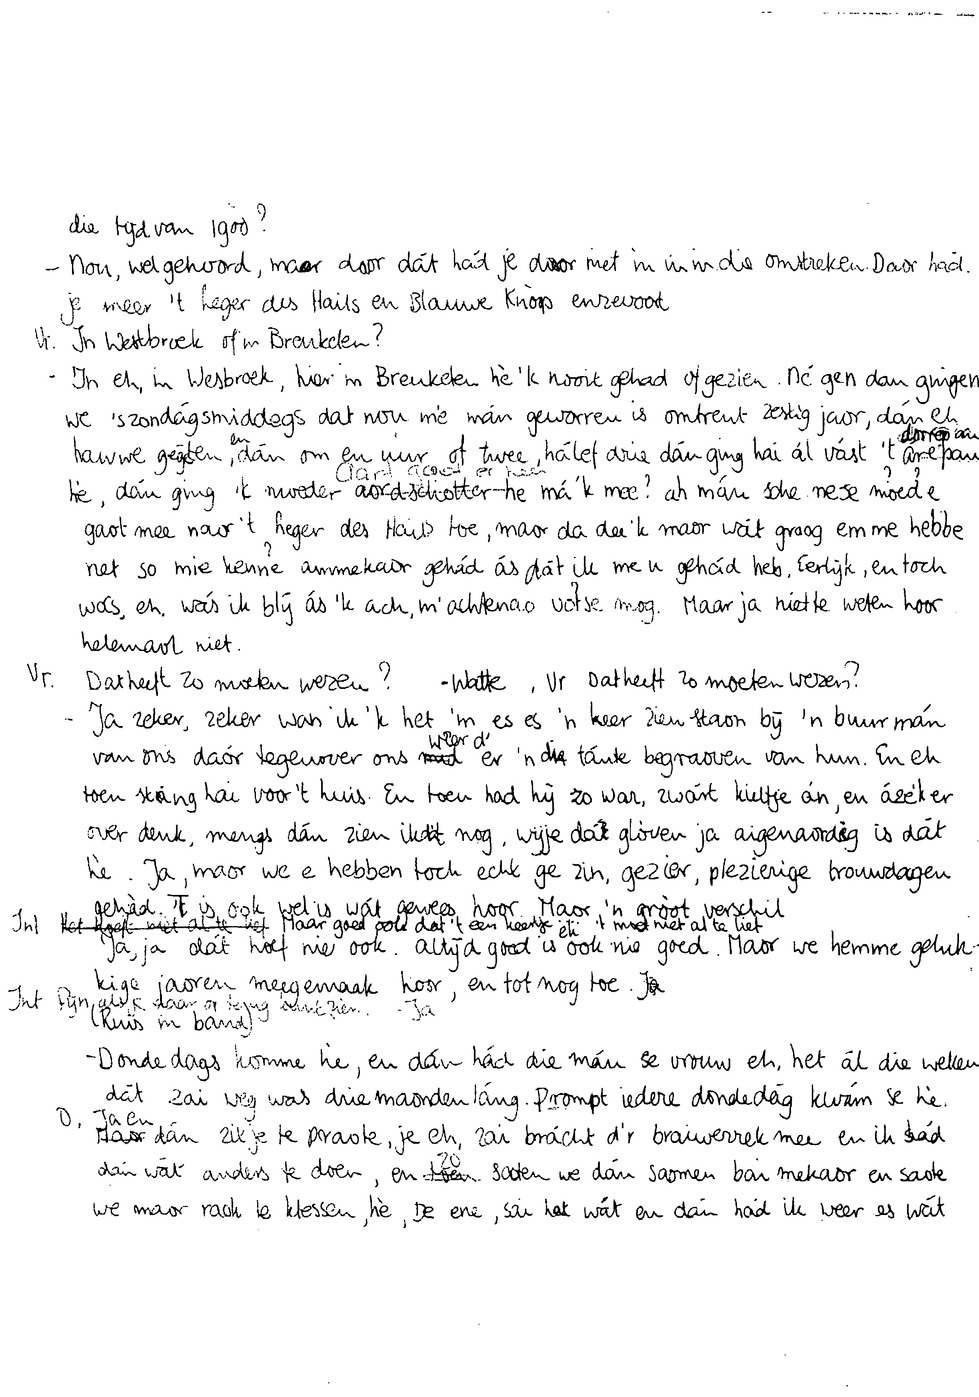 die tyd van 1900?
- Nou, wel gehoord, maar door dát hád je daor niet in in in die omstreken. Daor hád.
je meer 't heger des Hails en Blauwe Knòop enzevoot
Vr. In Westbroek of in Breukelen?
- In eh, in Wesbroek, hier in Breukelen hè 'k nooit gehad of gezien. Né gen dan gingen
we 'szondágsmiddegs dat nou me mán geworren is omtrent zestig jaor, dán eh
hauwe gegeten, en dán om en uur of twee, hálef drie dán ging hai ál vást 't
hè, dán ging 'k moeder he má'k mee? ah mán sche nese moede
gaot mee naor 't heger des Hails toe, maor da dee'k maor wát graog em me hebbe
net so mie kenne ammekaor gehád ás dát ik me u gehád heb. Eerlijk, en toch
wás, eh, wás ik blij ás 'k ach, m'achtenao mog. Maar ja niet te weten hoor
helemaol niet.
Vr. Dat heeft zo moeten wezen? - Watte, Vr Dat heeft zo moeten wezen?
- Ja zeker, zeker wan ik 'k het 'm es es 'n keer zien staon bij 'n buurmán
van ons daór tegenover ons wier d' er 'n tánte begraoven van hun. En eh
toen stáng hai voor 't huis. En toen had hij zo war, zwárt kieltje án, en ás ék er
over denk, mengs dán zien ik nog, wijje dát glòven ja aigenaordig is dát
hè. Ja, maor we e hebben toch echt ge zin, gezier, plezierige trouwdagen
gehád. 'T is ook wel is wát gewees hoor. Maor 'n gròot verschil
Int Het hoeft niet al te lief Maar goed ook dat 't een keertje eh 't moet niet al te lief
Ja, ja dát hoef nie ook. altijd goed is ook nie goed. Maor we hemme geluk-
kige jaoren meegemaak hoor, en tot nog toe. Ja
Int Fijn, als ik daar op terug kunt zien. - Ja
(Ruis in band)
- Donde dags komme hè, en dán hád die mán se vrouw eh, het ál die weken
dát zai weg was drie maonden láng. Prompt iedere dondedág kwám se hè.
O, Ja en
Maor dán zit je te praote, je eh, zai brácht d'r braiwerrek mee en ik hád
dán wát anders te doen, en zo saoten we dán saomen bai mekaor en saote
we maor raok te klessen, hè, De ene, sai het wát en dán hád ik weer es wát